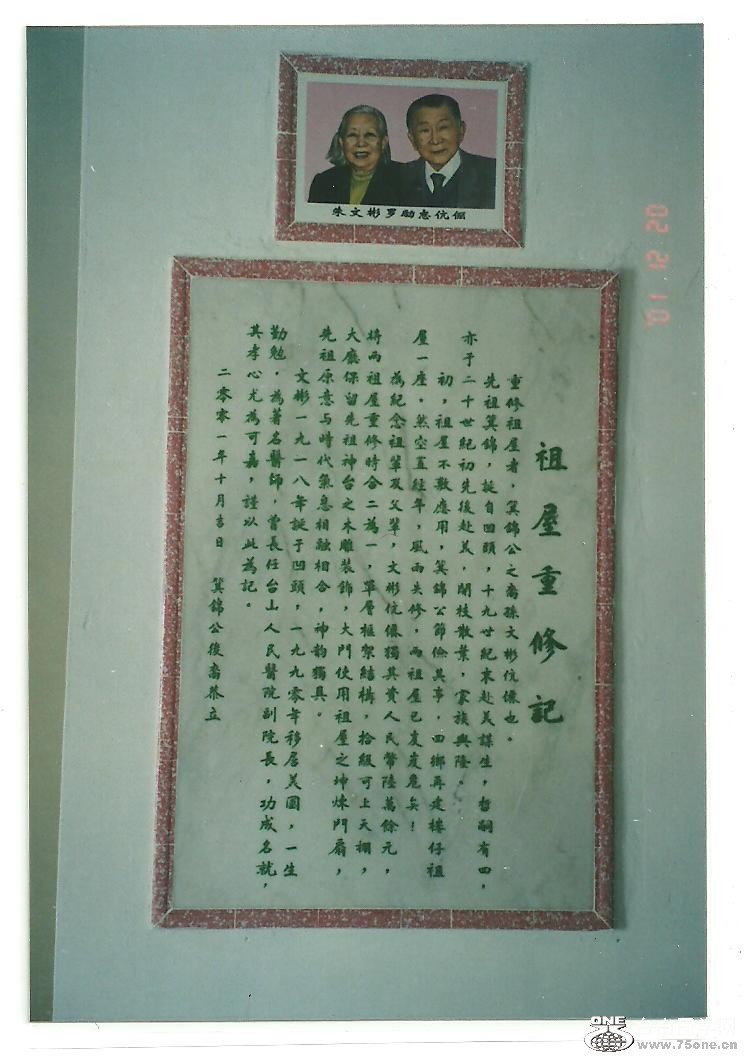 朱文彬罗伉俪
祖屋重修記
重修祖屋者，箕錦公之裔孫文彬伉儷也。
先祖箕錦，誕自凹頭，十九世紀末赴美謀生，哲嗣有四，
亦于二十世紀初先後赴美，開枝散葉，家族興隆。
初，祖屋不敷應用，箕錦公節儉其事，回鄉再建樓仔祖
屋一座。然空置經年，風雨失修，兩祖屋已岌岌危矣！
為紀念祖輩及父輩，文彬伉儷獨其資人民幣陸萬餘元，
將兩祖屋重修時合二為一，單層框架結構，拾級可上天棚，
大廳保留先祖神台之木雕裝飾，大門使用祖屋之坤門扇，
先祖原意与時代氣息相融相合，神韵獨具。
文彬一九一八年誕于凹頭，一九九零年移居美國，一生
勤勉，為著名醫師，曾長任台山人民醫院副院長，功成名就，
其孝心尤為可嘉，謹以此為記。
二零零一年十月吉日 箕錦公後裔恭立
'01 12 20
ONE
www.75one.cn